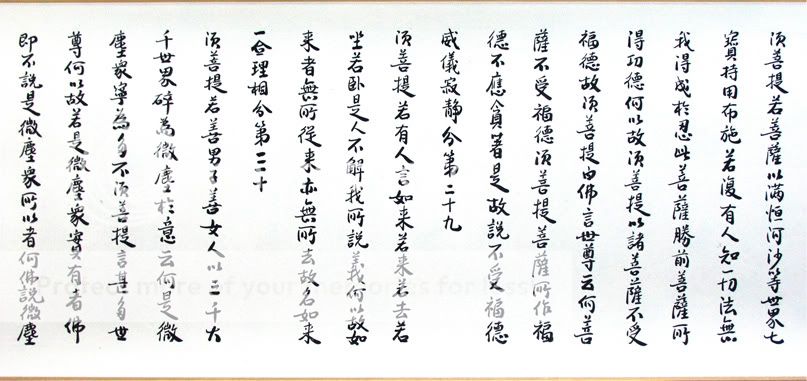 須菩提若菩薩以滿恒河沙等世界七
寶持用布施若復有人知一切法無
我得成於忍此菩薩勝前菩薩所
得功德何以故須菩提以諸菩薩不受
福德故須菩提白佛言世尊云何菩
薩不受福德須菩提菩薩所作福
德不應貪著是故說不受福德
威儀寂靜分第二十九
須菩提若有人言如来若来若去若
坐若卧是人不解我所說義何以故如
来者無所從来亦無所去故名如来
一合理相分第三十
須菩提若善男子善女人以三千大
千世界碎為微塵於意云何是微
塵衆寧為多不須菩提言甚多世
尊何以故若是微塵衆實有者佛
即不說是微塵衆所以者何佛說微塵
Protect more of your memories for less!